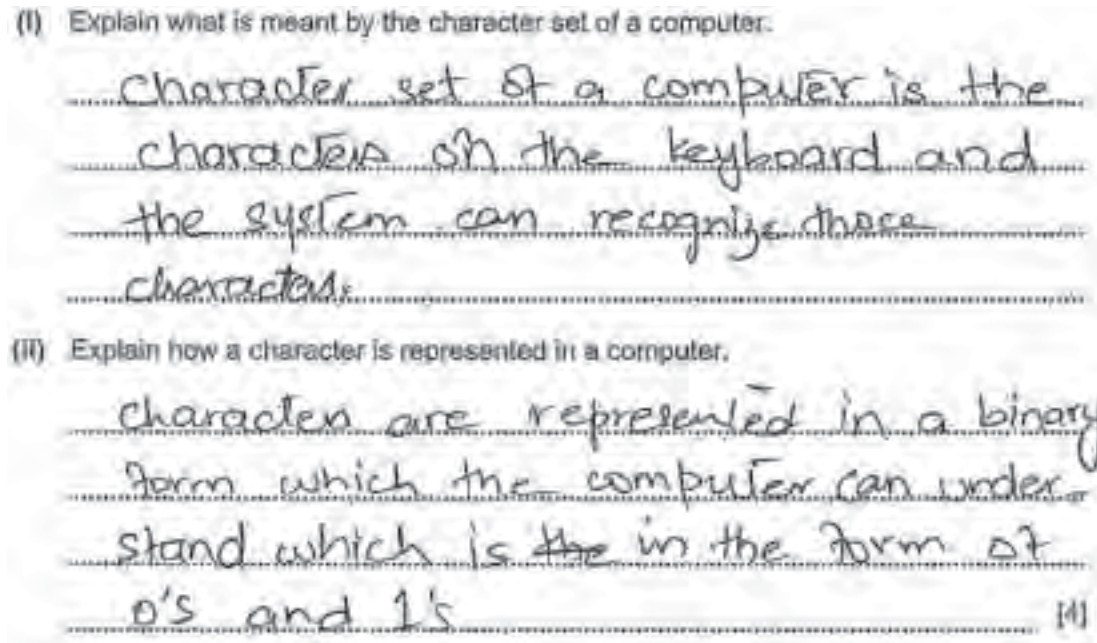 (i) Explain what is meant by the character set of a computer.
character set of a computer is the
characters on the keyboard and
the system can recognize those
characters.
(ii) Explain how a character is represented in a computer.
character are represented in a binary
form which the computer can under-
stand which is the in the form of
0's and 1's
[4]